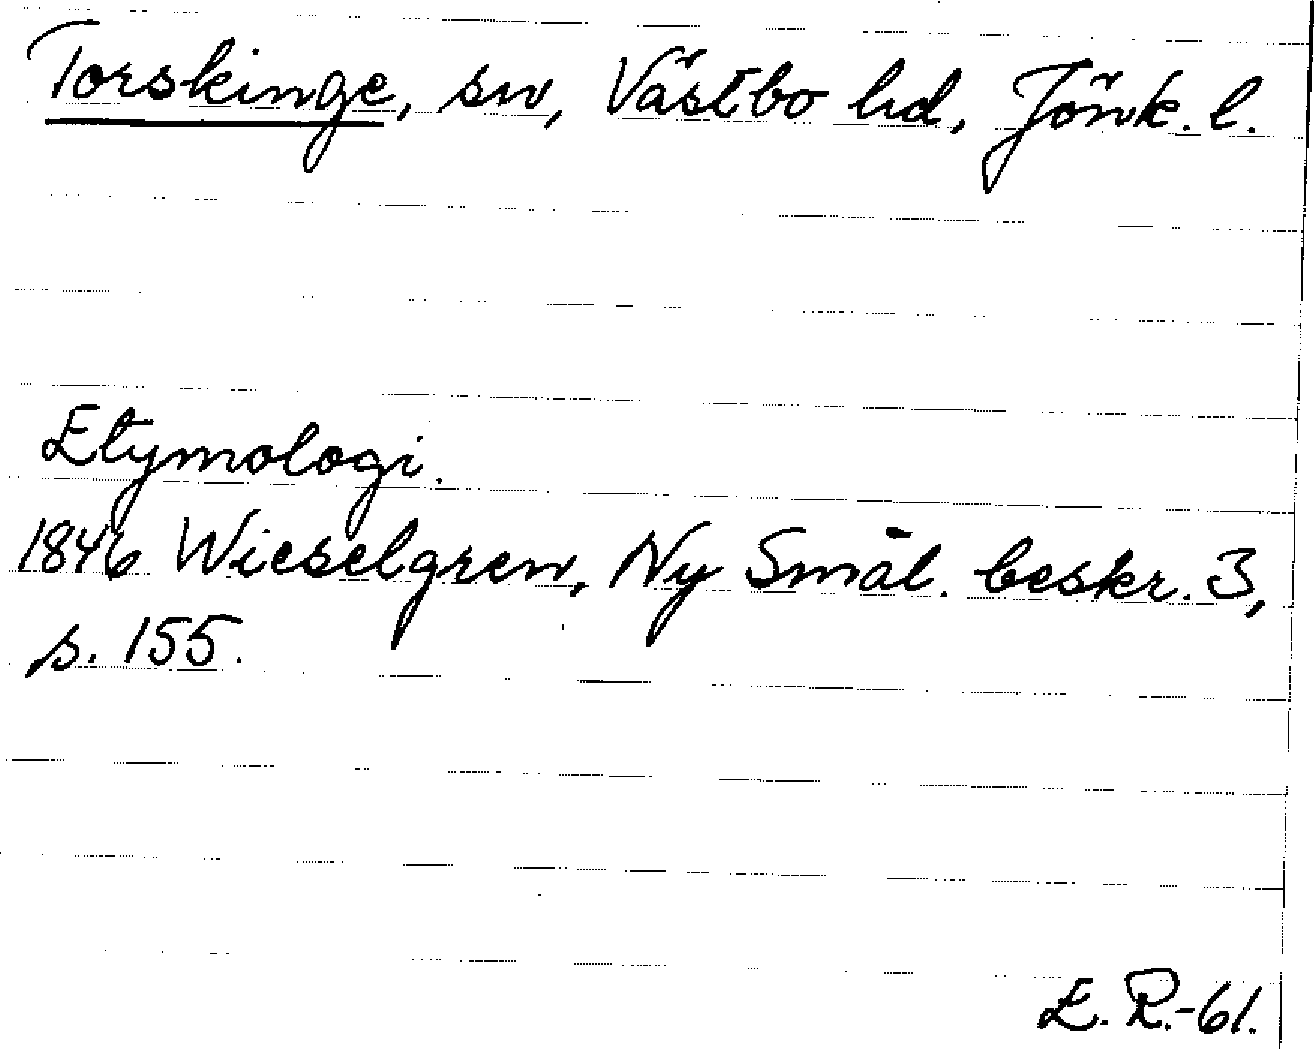 Torskinge, sn, Västbo hd, Jönk. l.
Etymologi.
1846 Wieselgren, Ny Smål. beskr. 3,
s. 155.
E. R.-61.